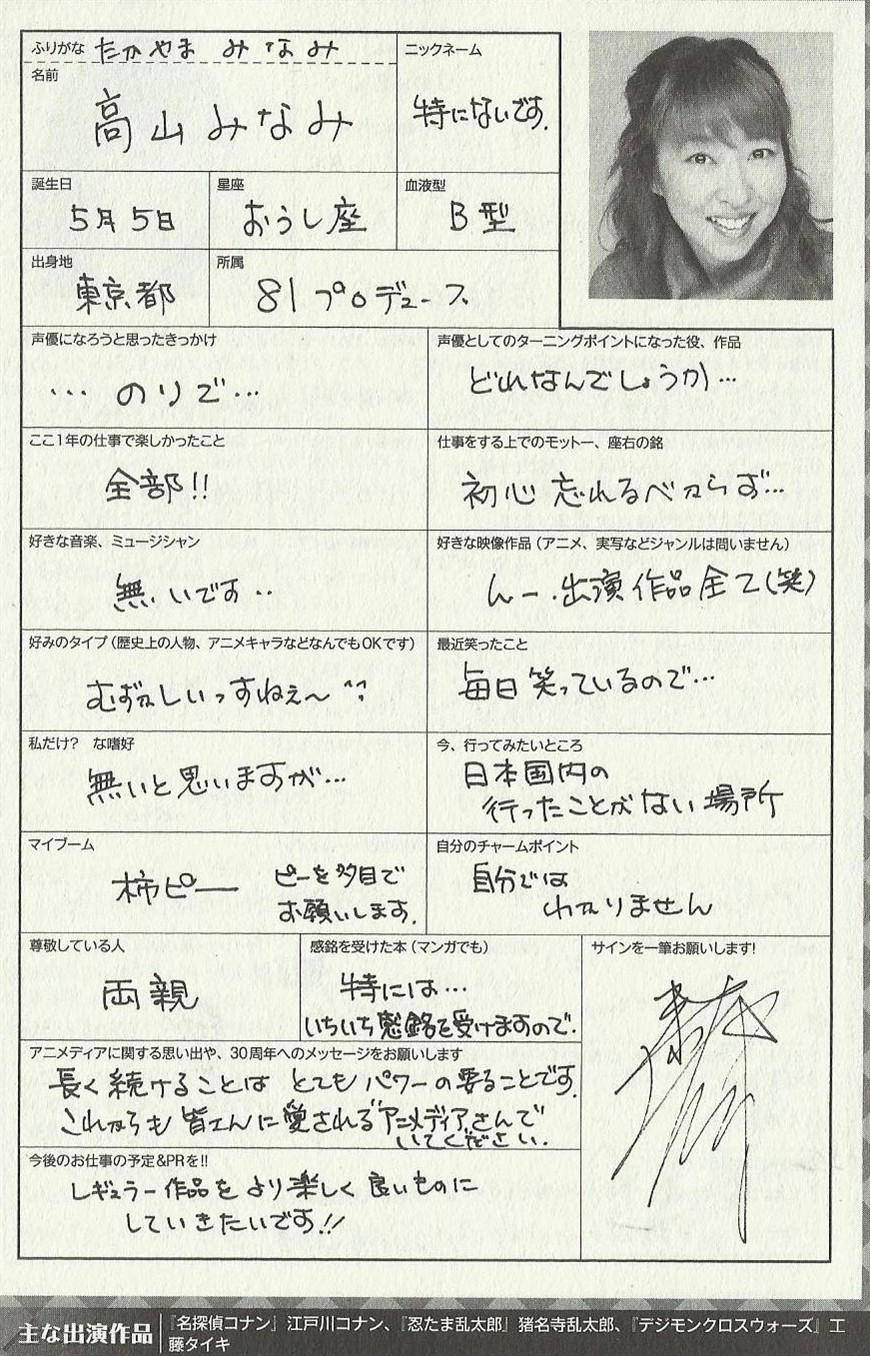 ふりがな たかやま みなみ
名前
高山みなみ
ニックネーム
特にないです.
誕生日
5月5日
星座
おうし座
血液型
B型
出身地
東京都
所属
81プロデュース
声優になろうと思ったきっかけ
…のりで…
声優としてのターニングポイントになった役、作品
どれなんでしょうか…
ここ1年の仕事で楽しかったこと
全部!!
仕事をする上でのモットー、座右の銘
初心忘れるべからず…
好きな音楽、ミュージシャン
無いです‥
好きな映像作品(アニメ、実写などジャンルは問いません)
んー.出演作品全て(笑)
好みのタイプ(歴史上の人物、アニメキャラなどなんでもOKです)
むずかしいっすねぇ〜
最近笑ったこと
毎日笑っているので…
私だけ? な嗜好
無いと思いますが…
今、行ってみたいところ
日本国内の
行ったことがない場所
マイブーム
柿ピー ピーを多目で
お願いします.
自分のチャームポイント
自分では
わかりません
尊敬している人
両親
感銘を受けた本(マンガでも)
特には…
いちいち感銘を受けますので.
サインを一筆お願いします!
アニメディアに関する思い出や、30周年へのメッセージをお願いします
長く続けることは とてもパワーの要ることです.
これからも皆さんに愛される"アニメディア"さんで
いてください.
今後のお仕事の予定&PRを!!
レギュラー作品をより楽しく良いものに
していきたいです!!
主な出演作品 『名探偵コナン』江戸川コナン、『忍たま乱太郎』猪名寺乱太郎、『デジモンクロスウォーズ』工
藤タイキ